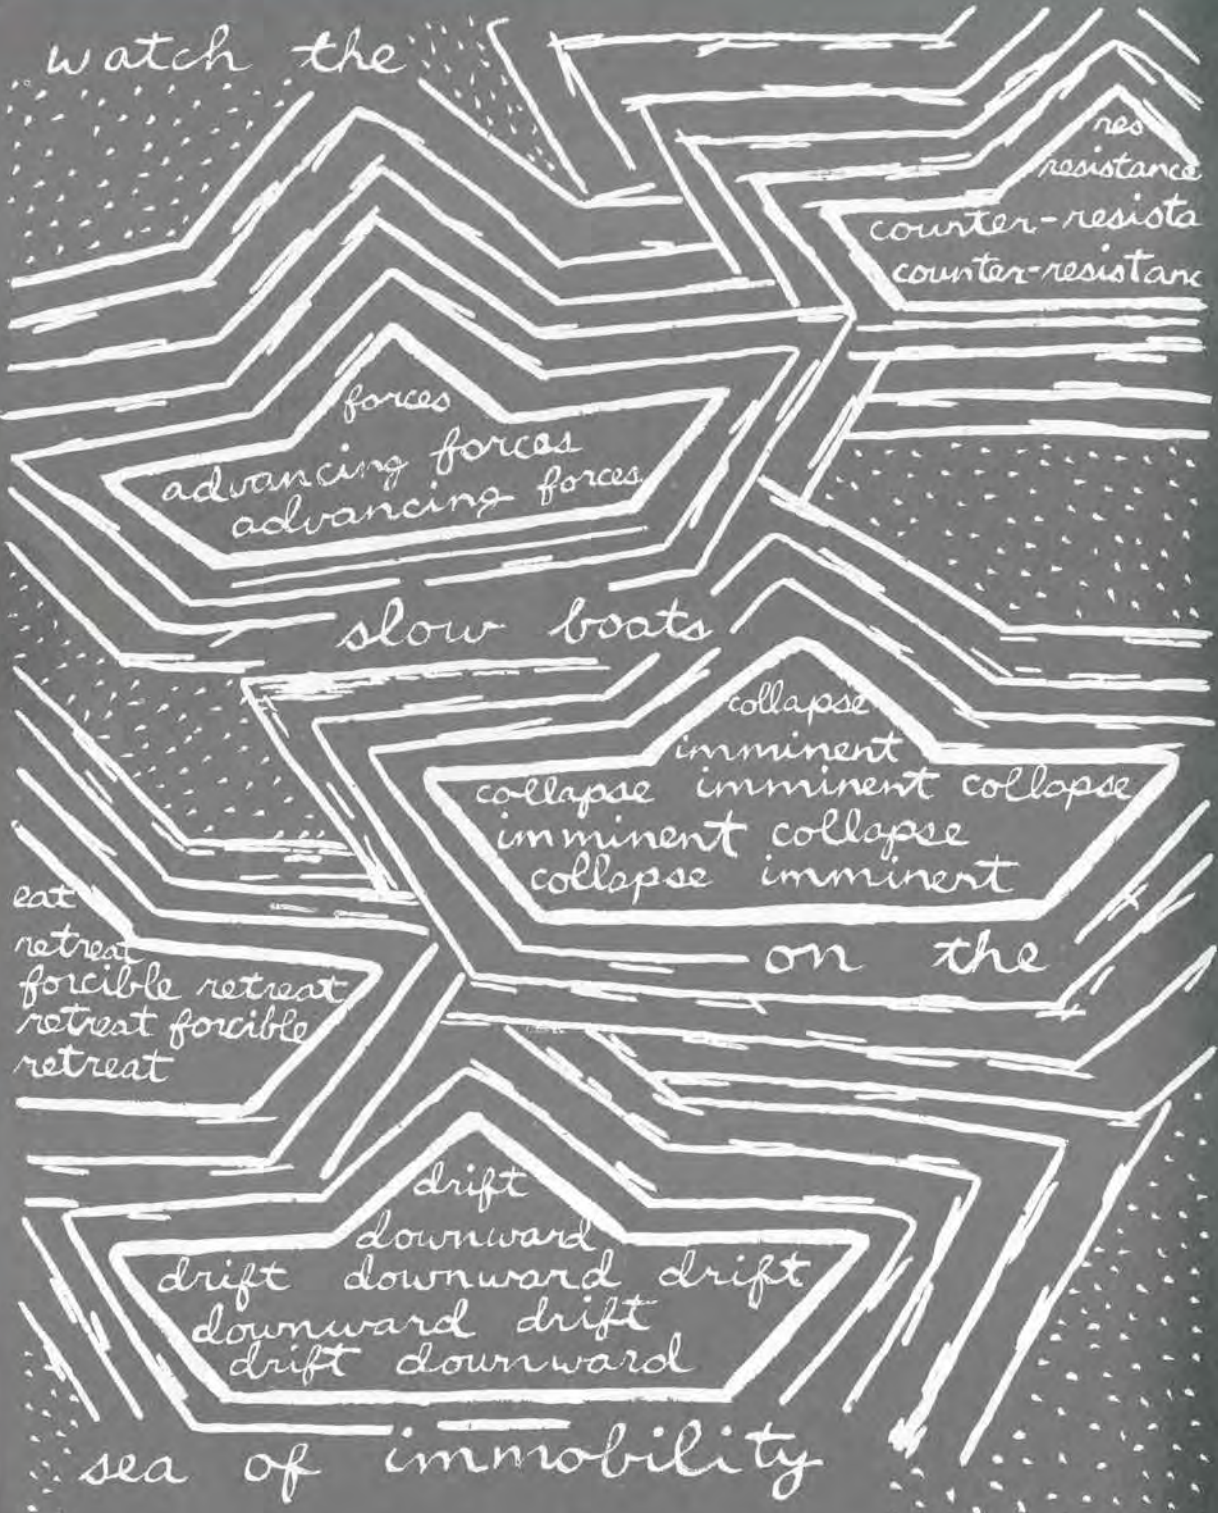 watch the
res
resistance
counter-resista
counter-resistanc
forces
advancing forces
advancing forces
slow boats
collapse
imminent
collapse imminent collapse
imminent collapse
collapse imminent
on the
eat
retreat
forcible retreat
retreat forcible
retreat
drift
downward
drift downward drift
downward drift
drift downward
sea of immobility